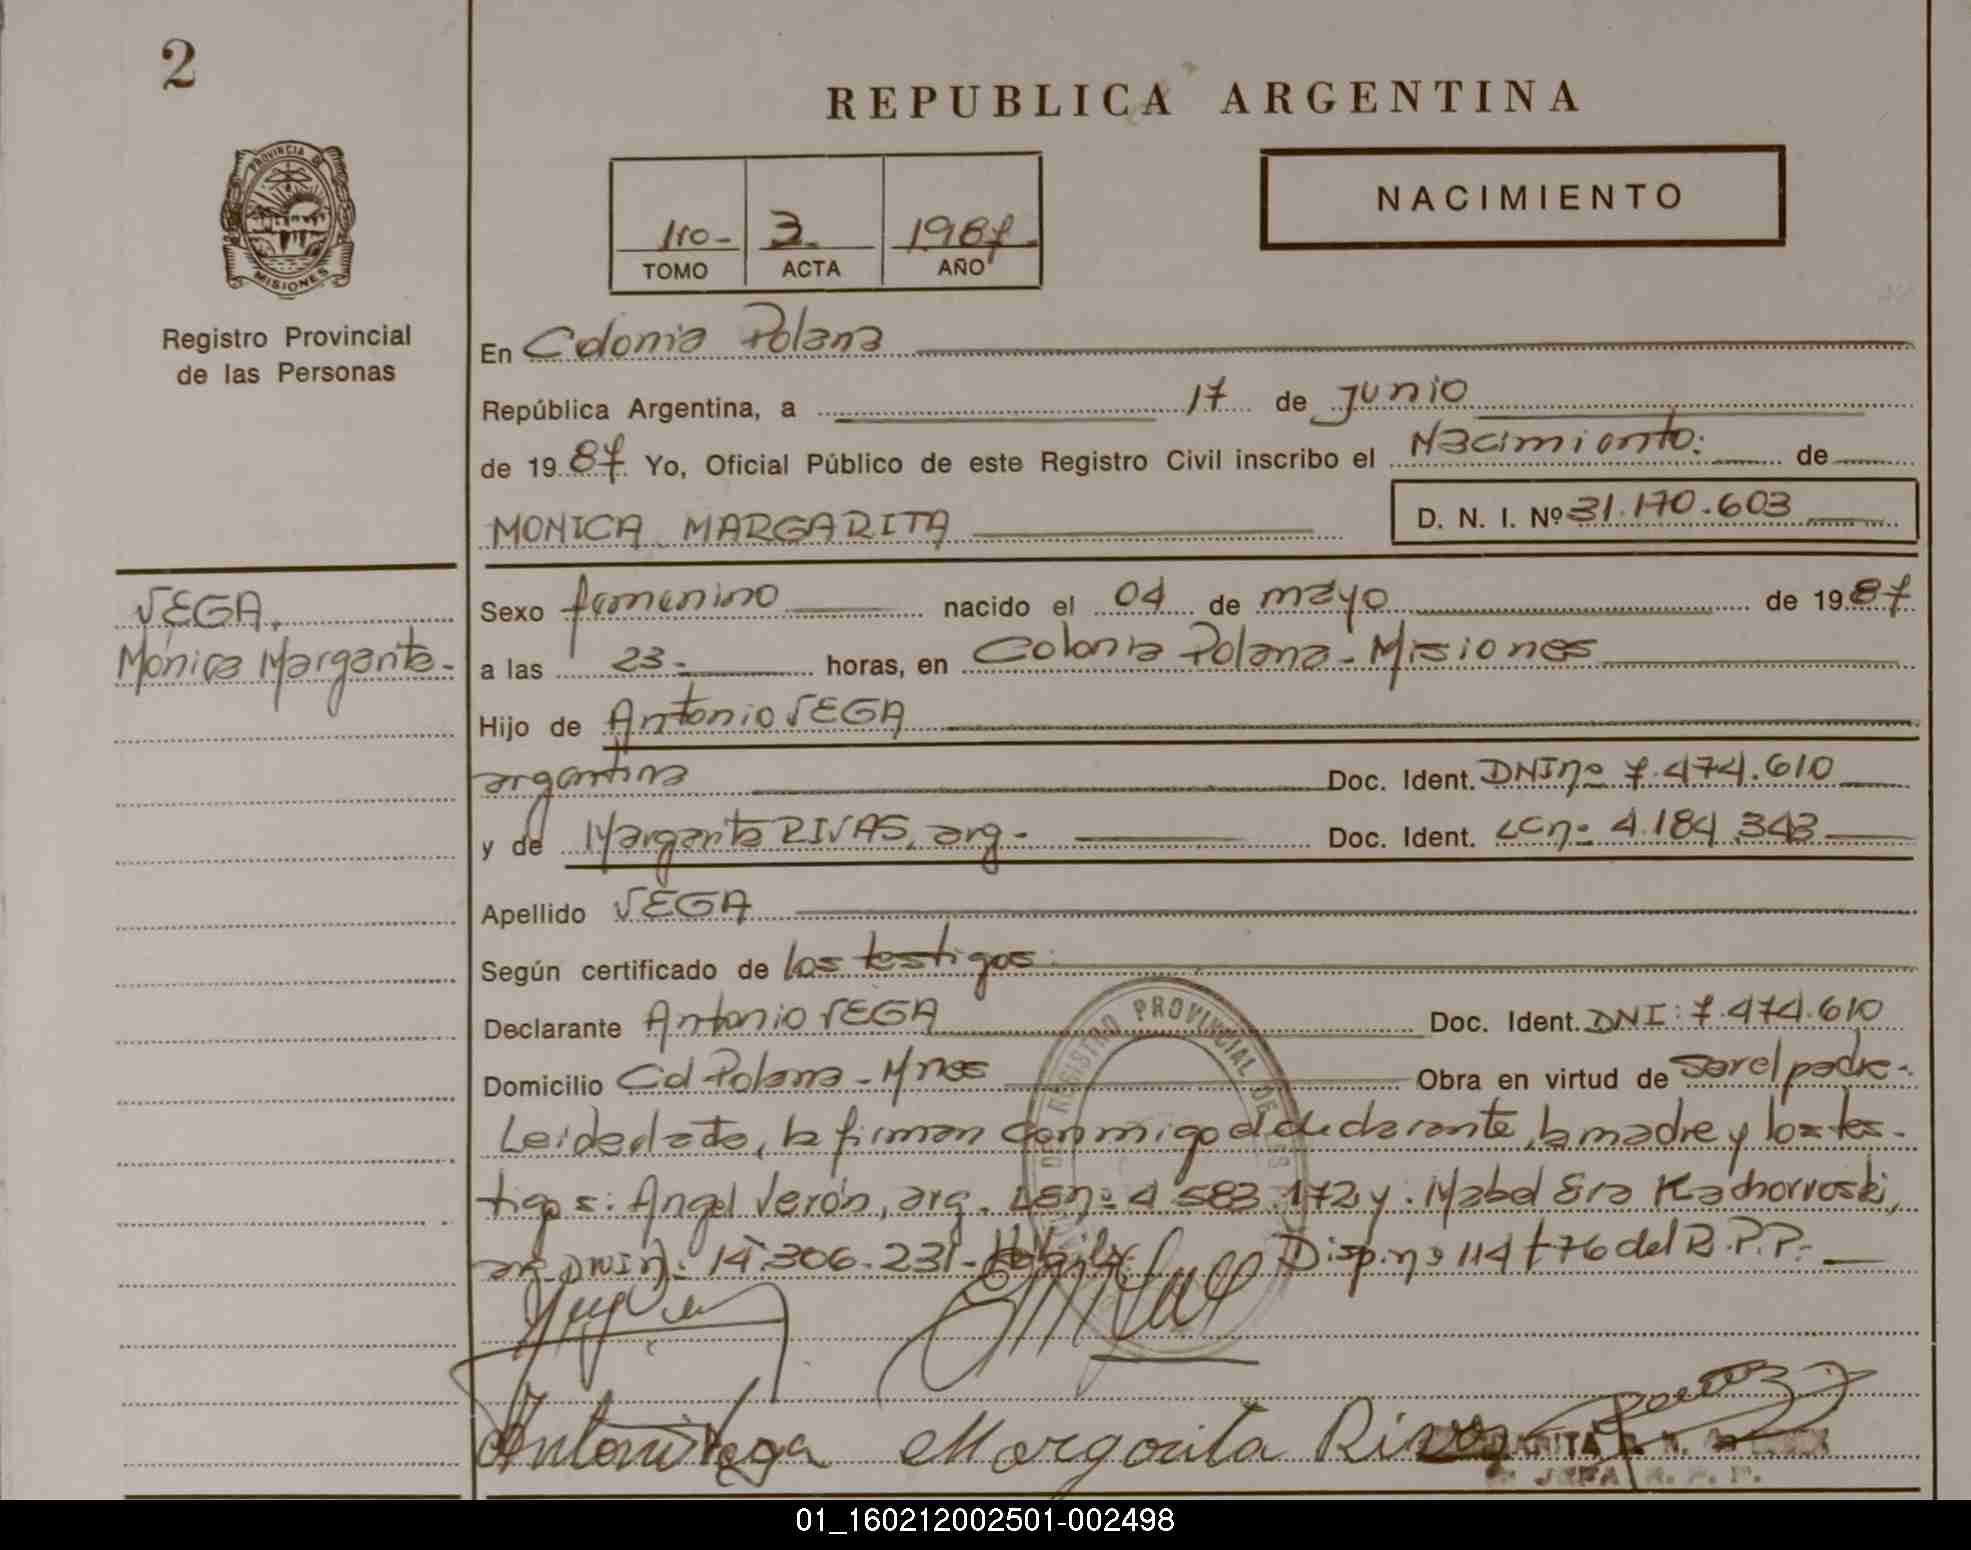 2
REPUBLICA ARGENTINA
PROVINCIA DE
MISIONES
Registro Provincial
de las Personas
1ro- 3. 1987.
TOMO ACTA AÑO
NACIMIENTO
En Colonia Polana
República Argentina, a 17 de Junio
de 1987. Yo, Oficial Público de este Registro Civil inscribo el Nacimiento. de
MONICA MARGARITA D. N. I. Nº 31.170.603
VEGA.
Mónica Margarita-
Sexo femenino nacido el 04 de mayo de 1987
a las 23- horas, en Colonia Polana-Misiones
Hijo de Antonio VEGA
argentina Doc. Ident. DNI nº 7.474.610
y de Margarita RIVAS, arg- Doc. Ident. LC nº 4.184.343
Apellido VEGA
Según certificado de los testigos.
Declarante Antonio VEGA Doc. Ident. DNI: 7.474.610
Domicilio Cd Polana-Mnes Obra en virtud de ser el padre-
Leida el acta, la firman conmigo el declarante, la madre y los tes-
tigos: Angel Verón, arg. LE nº 4.583.172 y Mabel Eva Kachorroski,
arg DNI nº 14.306.231- Disp. nº 114/76 del R.P.P.-
REGISTRO PROVINCIAL DE LAS
Antonio Vega Margarita Rivas
JEFA R. P. P.
01_160212002501-002498